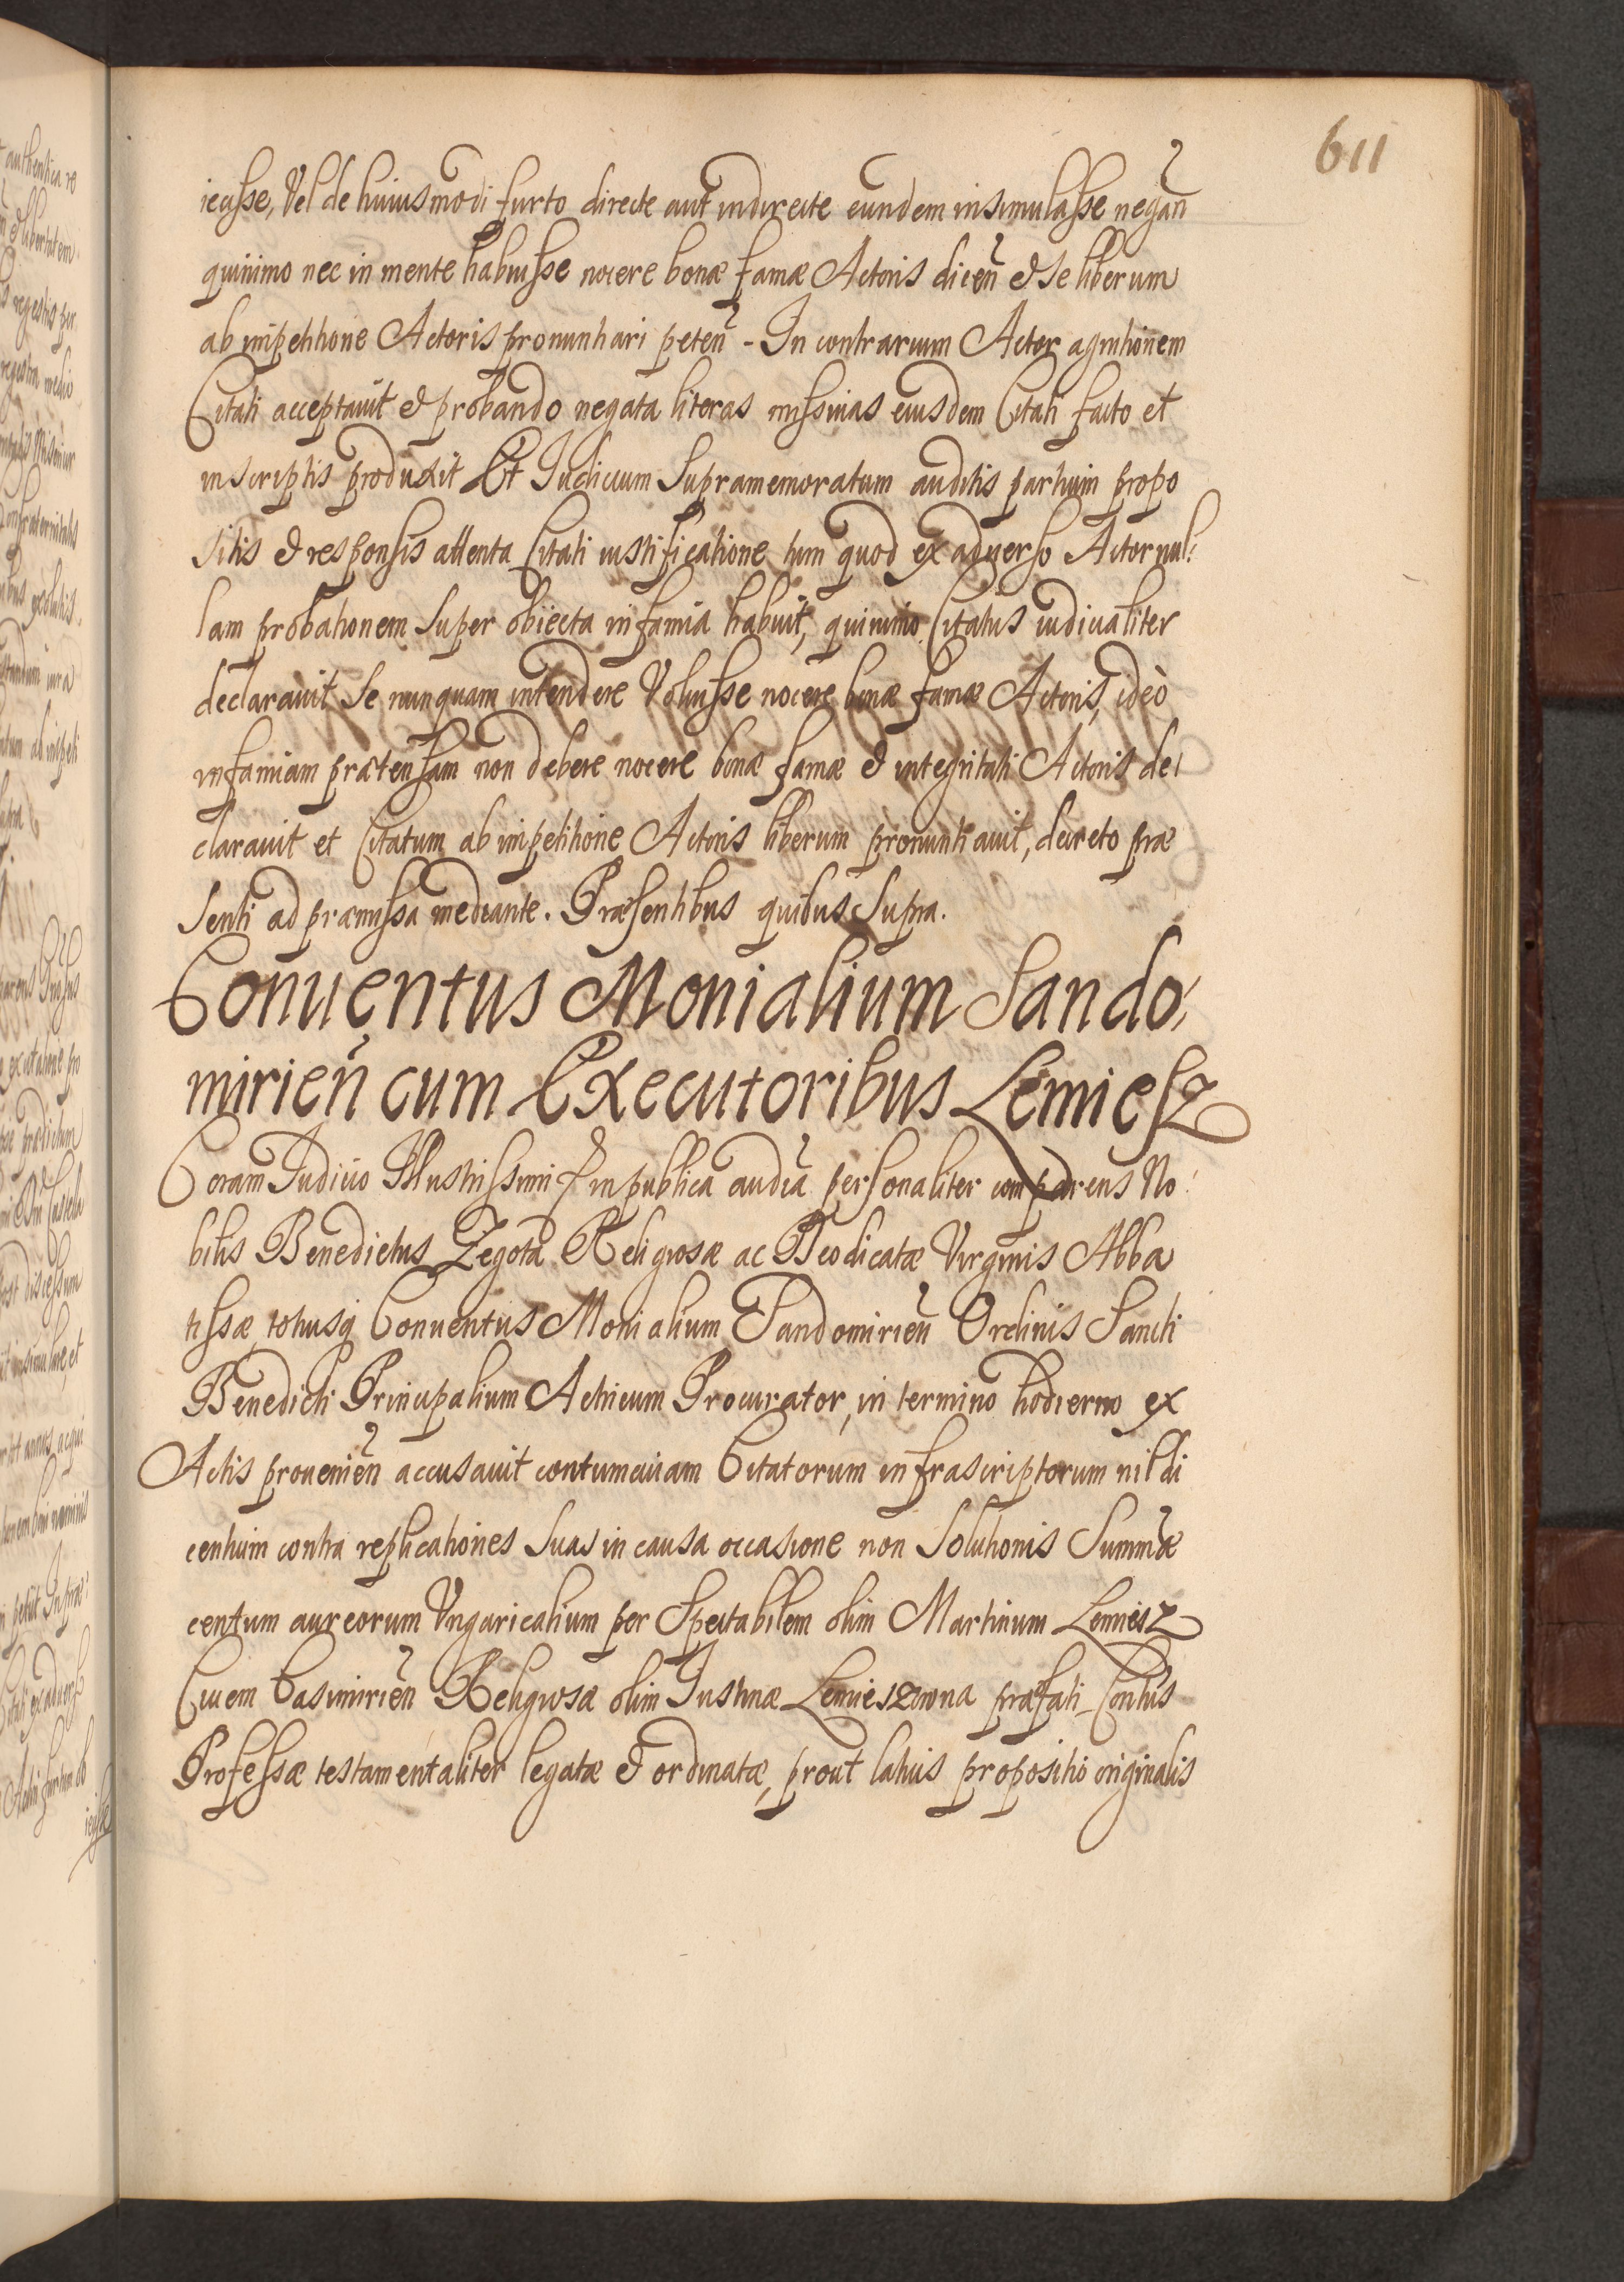 611
iecisse, Vel de huiusmodi furto directe aut indirecte eundem insimulasse negan̄
quinimo nec in mente habuisse nocere bonæ famæ Actoris dicen̄ & se liberum
ab impetitione Actoris pronuntiari peten̄ - In contrarium Actor agnitionem
Citati acceptauit & probando negata literas missiuas eiusdem Citati facto et
in scriptis produxit Et Iudicium Supramemoratum auditis partium propo
sitis & responsis attenta Citati iustificatione tum quod ex aduerso Actor nul:
lam probationem super obiecta infamia habuit, quinimo Citatus iudicialiter
declarauit se nunquam intendere Voluisse nocere bonæ famæ Actoris, ideò
infamiam prætensam non debere nocere bonæ famæ & integritati Actoris de/
clarauit et Citatum ab impetitione Actoris liberum pronuntiauit, decreto præ
senti ad præmissa mediante. Præsentibus quibus Supra.
Conuentus Monialium Sando/
mirien̄ cum Executoribus Lemiesz
Coram Iudicio Illustrissimi & in publica audia personaliter comparens No:
bilis Benedictus Zegota Religiosæ ac Deodicatæ Virginis Abba
tissæ totiusq Conuentus Monialium Sandomirien̄ Ordinis Sancti
Benedicti Principalium Actricum Procurator, in termino hodierno ex
Actis prouenien̄ accusauit contumaciam Citatorum infrascriptorum nil di
centium contra replicationes suas in causa occasione non Solutionis Summæ
centum aureorum Vngaricalium per Spectabilem olim Martinum Lemiesz
Ciuem Casimirien̄ Religiosæ olim Iustinæ Lemieszowna præfati Contus
Professæ testamentaliter legatæ & ordinatæ, prout latius propositio originalis